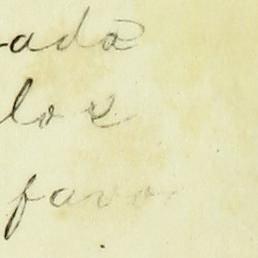 -ada
los
favo